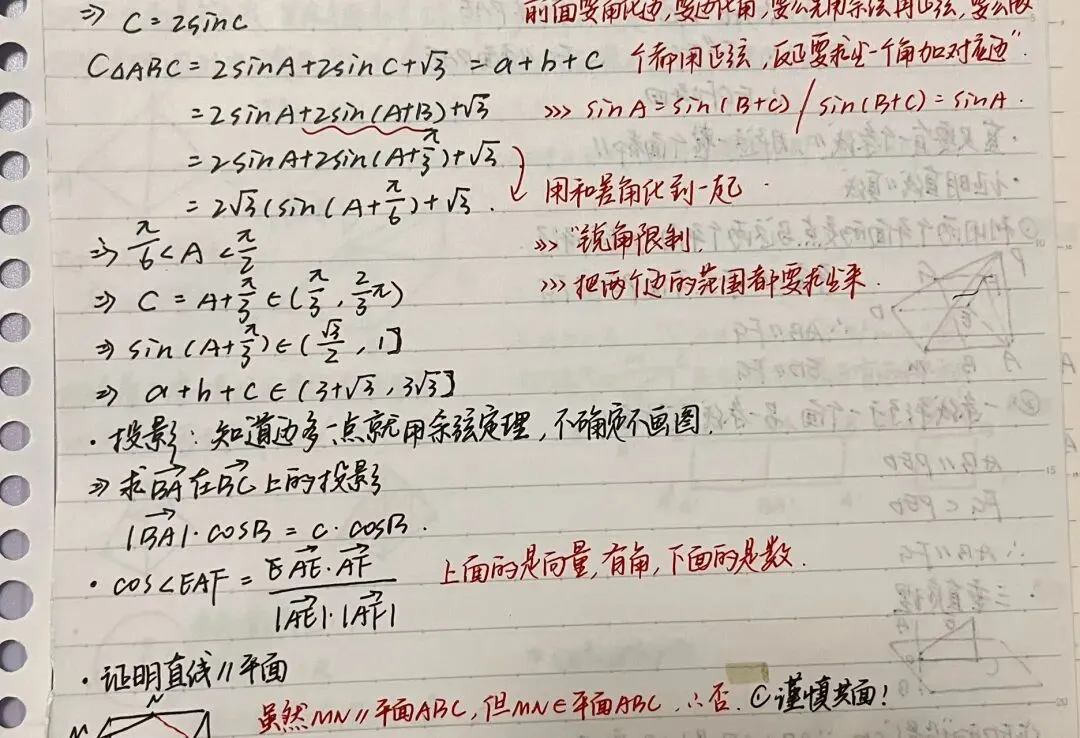 ⇒ C = 2sinC
前面要角化边,要边化角,要么先用余弦再正弦,要么两
C△ABC = 2sinA+2sinC+√3 = a+b+c 个都用正弦,反正要求出一个角加对应边"
=2sinA+2sin(A+B)+√3 >>> sinA=sin(B+C) / sin(B+C)=sinA.
=2sinA+2sin(A+π/3)+√3
= 2√3(sin(A+π/6)+√3. 用和差角化到一起.
⇒ π/6<A<π/2 >>> "锐角限制.
⇒ C = A+π/3∈(π/3, 2/3π) >>> 把两个边的范围都要求出来.
⇒ sin(A+π/3)∈(√3/2, 1]
⇒ a+b+c∈(3+√3, 3√3]
·投影:知道边多一点就用余弦定理,不确定不画图.
⇒ 求BA在BC上的投影
|BA|·cosB = c·cosB.
· cos<EAF = AE·AF / |AE|·|AF| 上面的是向量,有角,下面的是数.
·证明直线∥平面
虽然MN∥平面ABC,但MN∈平面ABC,∴否. ①谨慎共面!
M N